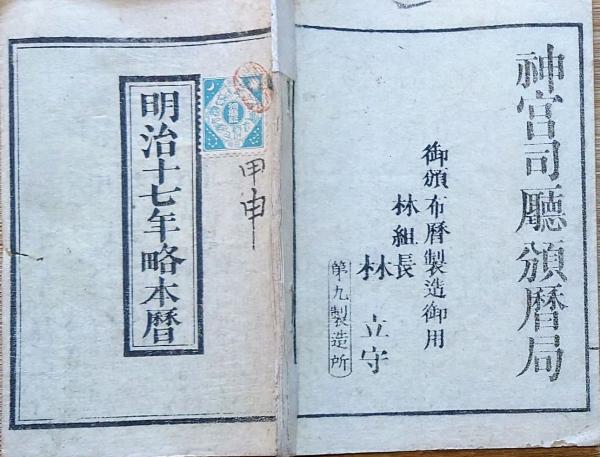 神宮司廳頒暦局
御頒布暦製造御用
林組長
林立守
第九製造所
甲申
明治十七年略本暦